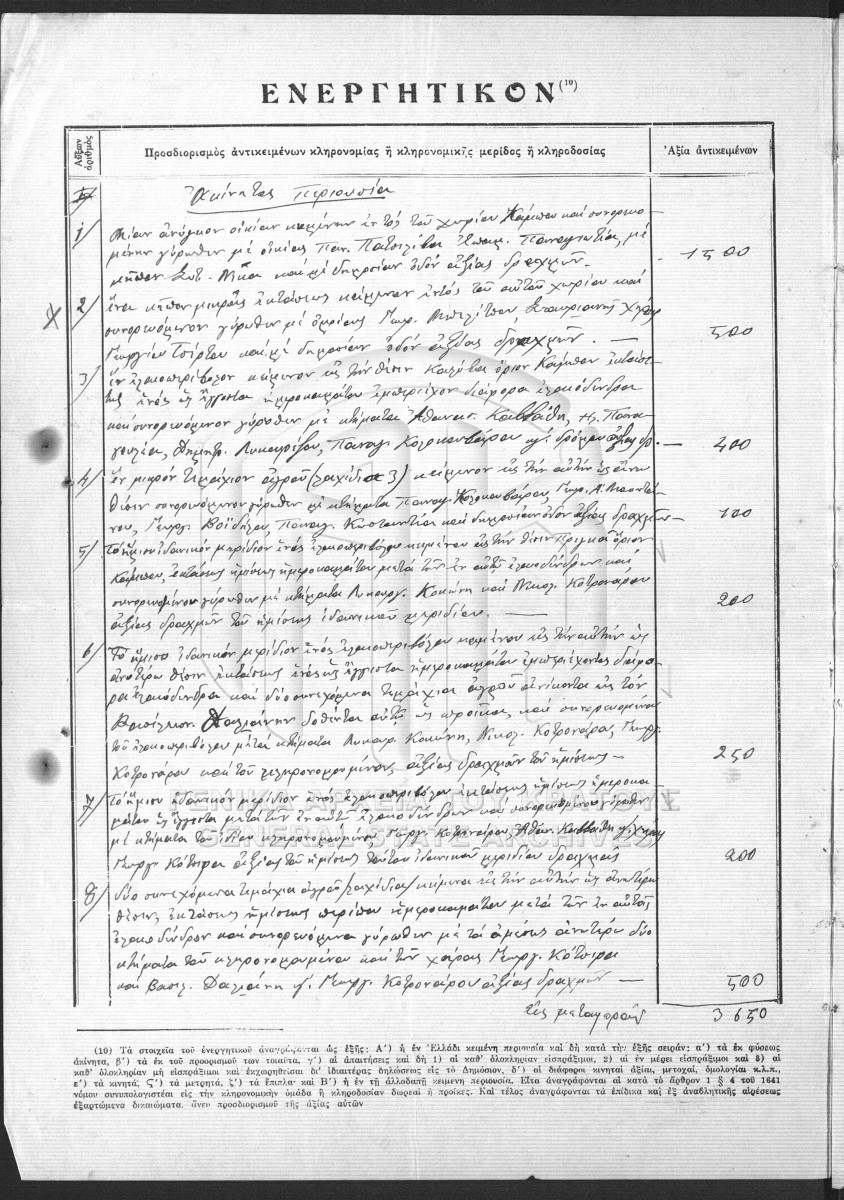 ΕΝΕΡΓΗΤΙΚΟΝ(10)
Αὔξων ἀριθμός
Προσδιορισμὸς ἀντικειμένων κληρονομίας ἢ κληρονομικῆς μερίδος ἢ κληροδοσίας
Ἀξία ἀντικειμένων
Ἀκίνητος περιουσία
1/ Μίαν ἀνώγειον οἰκίαν κειμένην ἐντός τοῦ χωρίου Κάμπου καί συνορευο-
μένην γύρωθεν μέ οἰκίας Παν. Παναγιωτέα, μέ
κῆπον Σωτ. καί μέ δημοσίαν ὁδόν ἀξίας δραχμῶν - 1500
2/ ἕνα κῆπον μικρᾶς ἐκτάσεως κείμενον ἐντός τοῦ αὐτοῦ χωρίου καί
συνορευόμενον γύρωθεν μέ ὁμοίους Γεωρ. Σταυριανῆς χήρας
Γεωργίου Τσίρτου καί μέ δημοσίαν ὁδόν ἀξίας δραχμῶν. — 500
3/ ἕν ἐλαιοπερίβολον κείμενον εἰς τήν θέσιν ὅριον Κάμπου ἐκτάσεως
ἑνός ὡς ἔγγιστα ἡμεροκαμάτου ἐμπεριέχον διάφορα ἐλαιόδενδρα
καί συνορευόμενον γύρωθεν μέ κτήματα Ἀθανασ. Καββάθη,
Δημητ. Παναγ. δρόμον ἀξίας δρ. — 400
4/ ἕν μικρόν τεμάχιον ἀγροῦ (λαχίδια 3) κείμενον εἰς τήν αὐτήν ὡς ἄνω
θέσιν συνορευόμενον γύρωθεν μέ κτήματα Παναγ. Γεωρ.
Γεωργ. Παναγ. καί δημοσίαν ὁδόν ἀξίας δραχμῶν — 100
5/ Τό ἥμισυ ἰδανικόν μερίδιον ἑνός ἐλαιοπεριβόλου κειμένου εἰς τήν θέσιν ὅριον
Κάμπου, ἐκτάσεως ἡμίσεως ἡμεροκαμάτου μετά τῶν ἐν αὐτῷ ἐλαιοδένδρων καί
συνορευομένου γύρωθεν μέ κτήματα Λυκούργ. Κοκώνη καί Νικολ. Κοτρονάρου
ἀξίας δραχμῶν τοῦ ἡμίσεως ἰδανικοῦ μεριδίου. — 200
6/ Τό ἥμισυ ἰδανικόν μερίδιον ἑνός ἐλαιοπεριβόλου κειμένου εἰς τήν αὐτήν ὡς
ἀνωτέρω θέσιν ἐκτάσεως ἑνός ὡς ἔγγιστα ἡμεροκαμάτου ἐμπεριέχοντος διάφο-
ρα ἐλαιόδενδρα καί δύο συνεχόμενα τεμάχια ἀγροῦ ἀνήκοντα εἰς τόν
Βασίλειον δοθέντα αὐτῷ ὡς προῖκα, καί συνορευομένου
τοῦ ἐλαιοπεριβόλου μέ τά κτήματα Λυκούργ. Κοκώνη, Νικολ. Κοτρονάρου, Γεωργ.
Κοτρονάρου καί τοῦ κληρονομουμένου ἀξίας δραχμῶν τοῦ ἡμίσεως — 250
7/ Τό ἥμισυ ἰδανικόν μερίδιον ἑνός ἐλαιοπεριβόλου ἐκτάσεως ἡμίσεως ἡμεροκα-
μάτου ὡς ἔγγιστα μετά τῶν ἐν αὐτῷ ἐλαιοδένδρων καί συνορευομένου γύρωθεν
μέ κτήματα τοῦ ἰδίου κληρονομουμένου, Γεωργ. Κοτρονάρου, Ἀθαν. Καββάθη χήρας
Γεωργ. Κότσιρα ἀξίας τοῦ ἡμίσεως τούτου ἰδανικοῦ μεριδίου δραχμάς 200
8/ δύο συνεχόμενα τεμάχια ἀγροῦ (λαχίδια) κείμενα εἰς τήν αὐτήν ὡς ἀνωτέρω
θέσιν ἐκτάσεως ἡμίσεως περίπου ἡμεροκαμάτου μετά τῶν ἐν αὐτοῖς
ἐλαιοδένδρων καί συνορευόμενα γύρωθεν μέ τά ἀμέσως ἀνωτέρω δύο
κτήματα τοῦ κληρονομουμένου καί τῆς χήρας Γεωργ. Κότσιρα
καί Βασιλ. Γεωργ. Κοτρονάρου ἀξίας δραχμῶν — 500
εἰς μεταφοράν 3650
ΓΕΝΙΚΑ ΑΡΧΕΙΑ ΤΟΥ ΚΡΑΤΟΥΣ
GENERAL STATE ARCHIVES
(10) Τὰ στοιχεῖα τοῦ ἐνεργητικοῦ ἀναγράφονται ὡς ἑξῆς: Α′) ἡ ἐν Ἑλλάδι κειμένη περιουσία καὶ δὴ κατὰ τὴν ἑξῆς σειράν: α′) τὰ ἐκ φύσεως
ἀκίνητα, β′) τὰ ἐκ τοῦ προορισμοῦ των τοιαῦτα, γ′) αἱ ἀπαιτήσεις καὶ δὴ 1) αἱ καθ᾽ ὁλοκληρίαν εἰσπράξιμοι, 2) αἱ ἐν μέρει εἰσπράξιμοι καὶ 3) αἱ
καθ᾽ ὁλοκληρίαν μὴ εἰσπράξιμοι καὶ ἐκχωρηθεῖσαι δι᾽ ἰδιαιτέρας δηλώσεως εἰς τὸ Δημόσιον, δ′) αἱ διάφοροι κινηταὶ ἀξίαι, μετοχαί, ὁμολογίαι κ.λ.π.,
ε′) τὰ κινητά, Ϛ′) τὰ μετρητά, ζ′) τὰ ἔπιπλα· καὶ Β′) ἡ ἐν τῇ ἀλλοδαπῇ κειμένη περιουσία. Εἶτα ἀναγράφονται αἱ κατὰ τὸ ἄρθρον 1 § 4 τοῦ 1641
νόμου συνυπολογιστέαι εἰς τὴν κληρονομικὴν ὁμάδα ἢ κληροδοσίαν δωρεαὶ ἢ προῖκες. Καὶ τέλος ἀναγράφονται τὰ ἐπίδικα καὶ ἐξ ἀναβλητικῆς αἱρέσεως
ἐξαρτώμενα δικαιώματα, ἄνευ προσδιορισμοῦ τῆς ἀξίας αὐτῶν